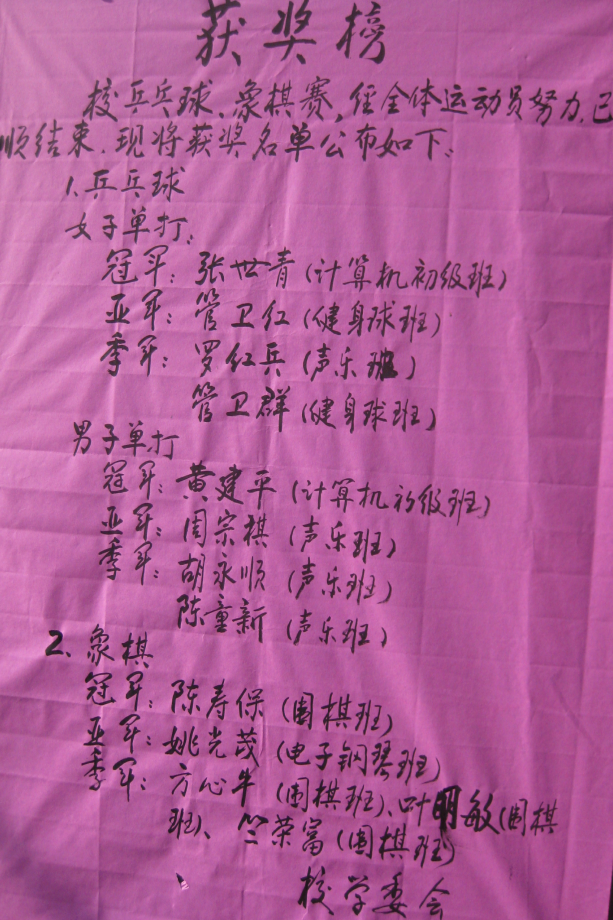 获奖榜
校乒乓球、象棋赛,经全体运动员努力,已
顺结束.现将获奖名单公布如下:
1、乒乓球
女子单打:
冠军:张世青(计算机初级班)
亚军:管卫红(健身球班)
季军:罗红兵(声乐班)
管卫群(健身球班)
男子单打
冠军:黄建平(计算机初级班)
亚军:周宗祺(声乐班)
季军:胡永顺(声乐班)
陈童新(声乐班)
2、象棋
冠军:陈寿保(围棋班)
亚军:姚光茂(电子钢琴班)
季军:方心牛(围棋班)、叶明敏(围棋
班)、竺荣富(围棋班)
校学委会